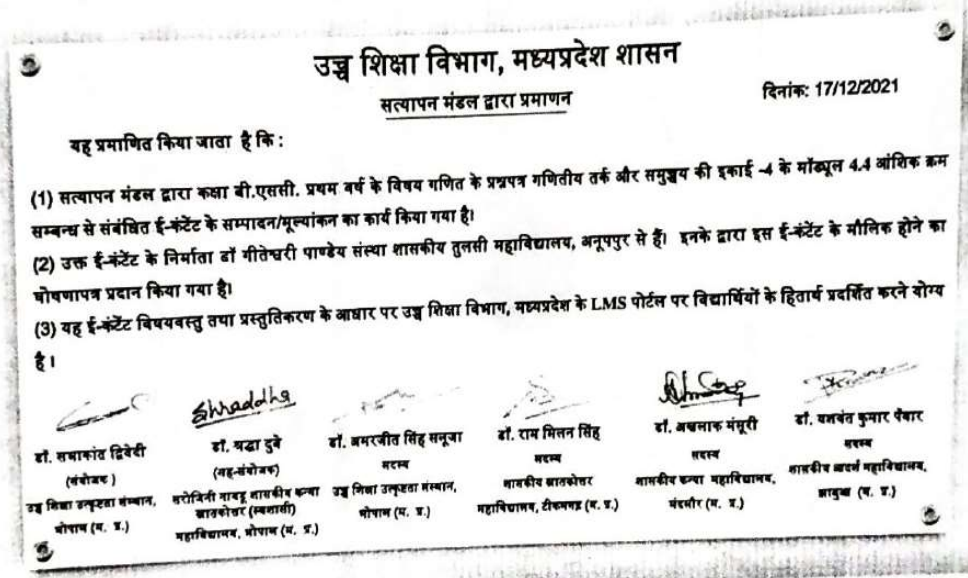 उच्च शिक्षा विभाग, मध्यप्रदेश शासन
सत्यापन मंडल द्वारा प्रमाणन
दिनांक: 17/12/2021
यह प्रमाणित किया जाता है कि :
(1) सत्यापन मंडल द्वारा कक्षा बी.एससी. प्रथम वर्ष के विषय गणित के प्रश्नपत्र गणितीय तर्क और समुच्चय की इकाई -4 के मॉड्यूल 4.4 आंशिक क्रम
सम्बन्ध से संबंधित ई-कंटेंट के सम्पादन/मूल्यांकन का कार्य किया गया है।
(2) उक्त ई-कंटेंट के निर्माता डॉ गीतेश्वरी पाण्डेय संस्था शासकीय तुलसी महाविद्यालय, अनूपपुर से हैं। इनके द्वारा इस ई-कंटेंट के मौलिक होने का
घोषणापत्र प्रदान किया गया है।
(3) यह ई-कंटेंट विषयवस्तु तथा प्रस्तुतिकरण के आधार पर उच्च शिक्षा विभाग, मध्यप्रदेश के LMS पोर्टल पर विद्यार्थियों के हितार्थ प्रदर्शित करने योग्य
है।
Shraddha
डॉ. सभाकांत द्विवेदी
(संयोजक)
उच्च शिक्षा उत्कृष्टता संस्थान,
भोपाल (म. प्र.)
डॉ. श्रद्धा दुबे
(सह-संयोजक)
सरोजिनी नायडू शासकीय कन्या
स्नातकोत्तर (स्वशासी)
महाविद्यालय, भोपाल (म. प्र.)
डॉ. अमरजीत सिंह सलूजा
सदस्य
उच्च शिक्षा उत्कृष्टता संस्थान,
भोपाल (म. प्र.)
डॉ. राम मिलन सिंह
सदस्य
शासकीय स्नातकोत्तर
महाविद्यालय, टीकमगढ़ (म. प्र.)
डॉ. अखलाक मंसूरी
सदस्य
शासकीय कन्या महाविद्यालय,
मंदसौर (म. प्र.)
डॉ. यशवंत कुमार पंवार
सदस्य
शासकीय आदर्श महाविद्यालय,
झाबुआ (म. प्र.)